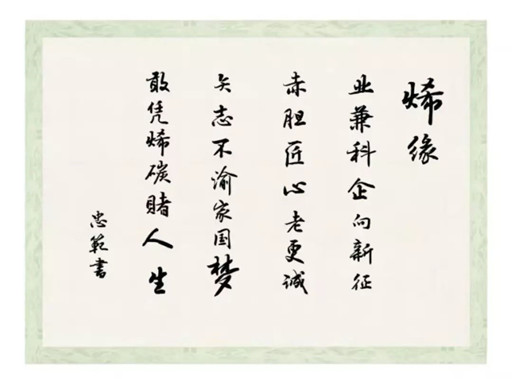 烯缘
业兼科企向新征
赤胆匠心老更诚
矢志不渝家国梦
敢凭烯碳赌人生
忠範書